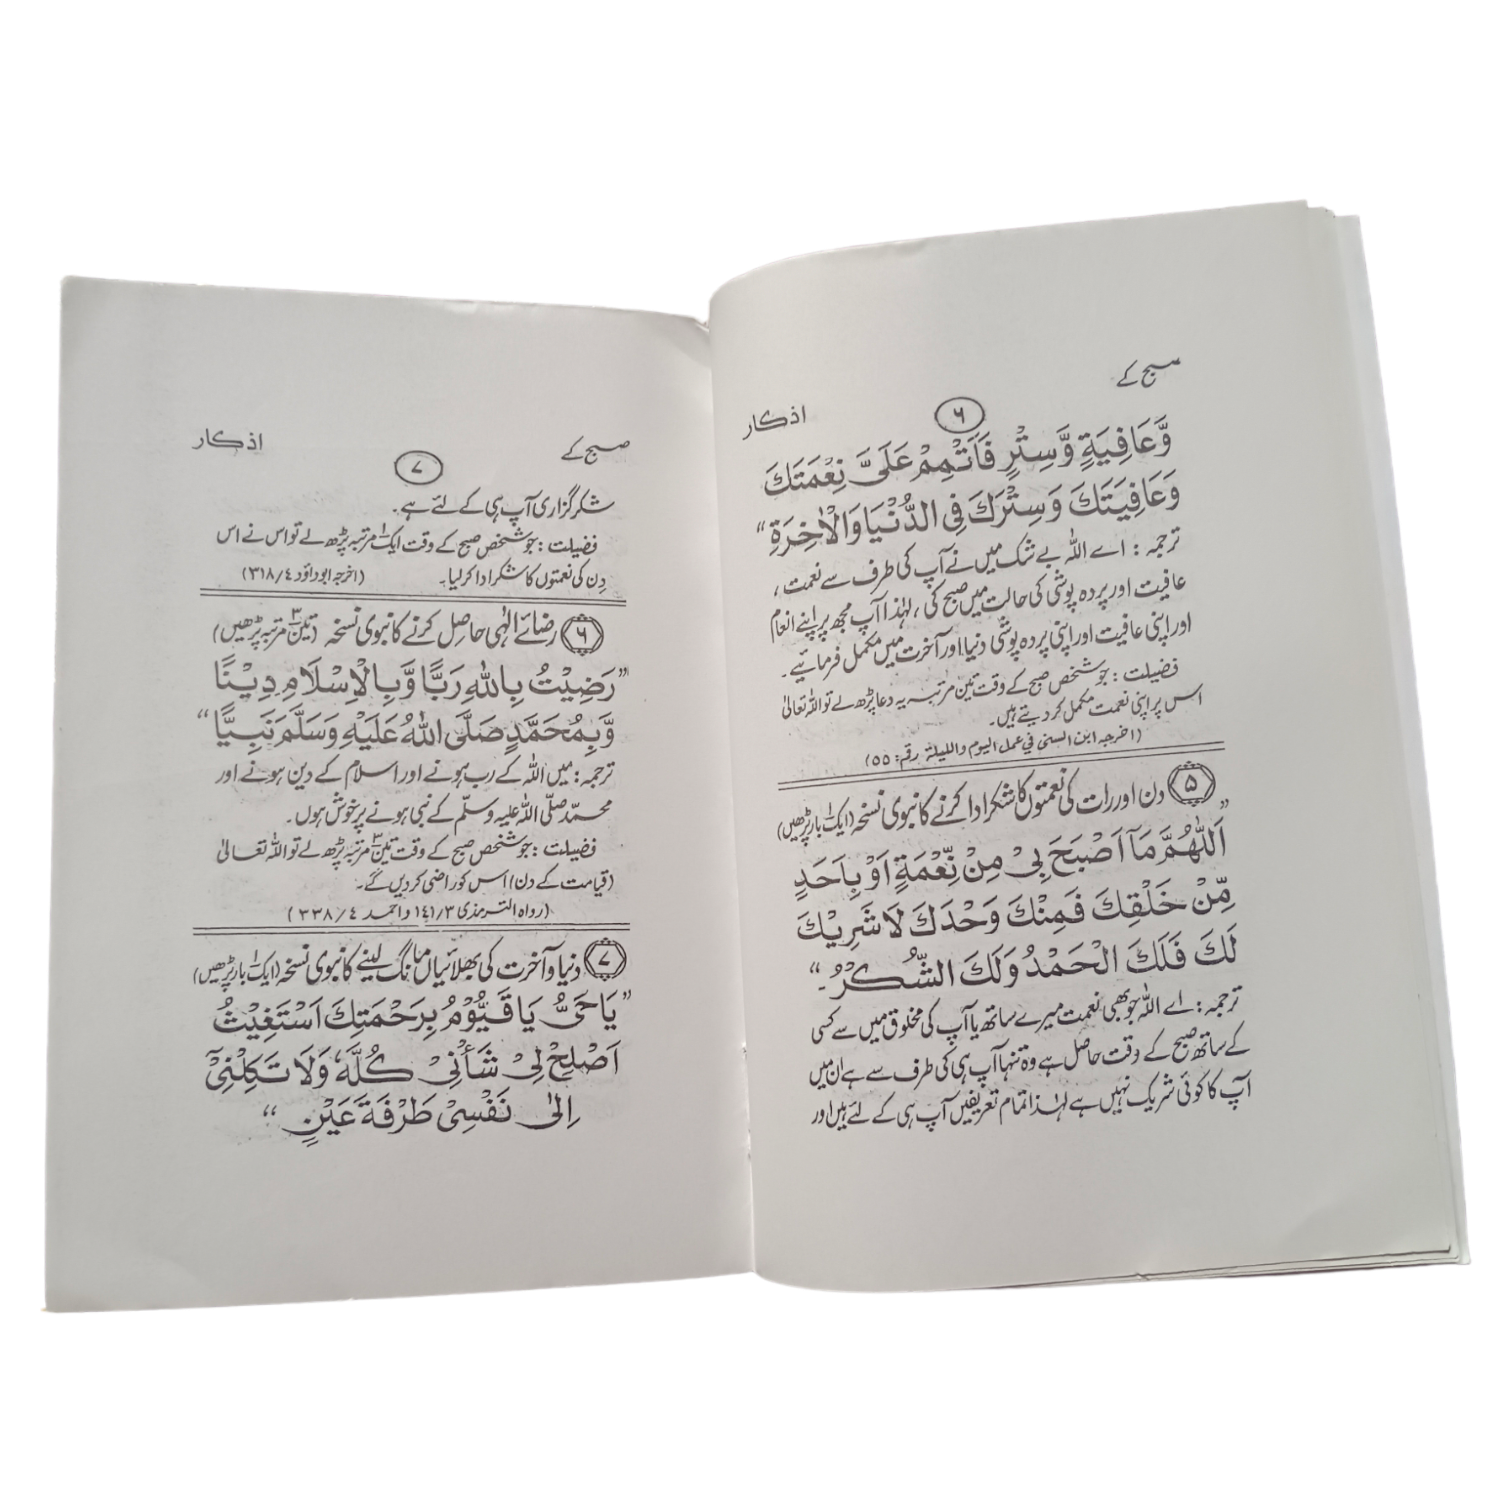 صبح کے
۶
اذکار
وَّعَافِيَةٍ وَّسِتْرٍ فَاَتْمِمْ عَلَىَّ نِعْمَتَكَ
وَعَافِيَتَكَ وَسِتْرَكَ فِى الدُّنْيَا وَالْاٰخِرَةِ“
ترجمہ : اے اللہ بے شک میں نے آپ کی طرف سے نعمت ،
عافیت اور پردہ پوشی کی حالت میں صبح کی ، لہٰذا آپ مجھ پر اپنے انعام
اور اپنی عافیت اور اپنی پردہ پوشی دنیا اور آخرت میں مکمل فرمائیے۔
فضیلت : جو شخص صبح کے وقت تین مرتبہ یہ دعا پڑھ لے تو اللہ تعالیٰ
اس پر اپنی نعمت مکمل کر دیتے ہیں۔
(اخرجه ابن السنی فی عمل الیوم واللیلة رقم: ۵۵)
۵ دن اور رات کی نعمتوں کا شکر ادا کرنے کا نبوی نسخہ (ایک بار پڑھیں)
”اَللّٰهُمَّ مَآ اَصْبَحَ بِىْ مِنْ نِّعْمَةٍ اَوْ بِاَحَدٍ
مِّنْ خَلْقِكَ فَمِنْكَ وَحْدَكَ لَا شَرِيْكَ
لَكَ فَلَكَ الْحَمْدُ وَلَكَ الشُّكْرُ۔“
ترجمہ : اے اللہ جو بھی نعمت میرے ساتھ یا آپ کی مخلوق میں سے کسی
کے ساتھ صبح کے وقت حاصل ہے وہ تنہا آپ ہی کی طرف سے ہے ان میں
آپ کا کوئی شریک نہیں ہے لہٰذا تمام تعریفیں آپ ہی کے لئے ہیں اور
صبح کے
۷
اذکار
شکر گزاری آپ ہی کے لئے ہے۔
فضیلت : جو شخص صبح کے وقت ایک مرتبہ پڑھ لے تو اس نے اس
دن کی نعمتوں کا شکر ادا کر لیا۔ (اخرجه ابوداؤد ۴/۳۱۸)
۶ رضائے الٰہی حاصل کرنے کا نبوی نسخہ (تین۳ مرتبہ پڑھیں)
”رَضِيْتُ بِاللّٰهِ رَبًّا وَّبِالْاِسْلَامِ دِيْنًا
وَّبِمُحَمَّدٍ صَلَّى اللّٰهُ عَلَيْهِ وَسَلَّمَ نَبِيًّا“
ترجمہ : میں اللہ کے رب ہونے اور اسلام کے دین ہونے اور
محمد صلی اللہ علیہ وسلم کے نبی ہونے پر خوش ہوں۔
فضیلت : جو شخص صبح کے وقت تین۳ مرتبہ پڑھ لے تو اللہ تعالیٰ
(قیامت کے دن) اس کو راضی کردیں گے۔
(رواه الترمذی ۳/۱۴۱ واحمد ۴/۳۳۸)
۷ دنیا و آخرت کی بھلائیاں مانگ لینے کا نبوی نسخہ (ایک بار پڑھیں)
”يَا حَىُّ يَا قَيُّوْمُ بِرَحْمَتِكَ اَسْتَغِيْثُ
اَصْلِحْ لِىْ شَأْنِىْ كُلَّهٗ وَلَا تَكِلْنِىْٓ
اِلٰى نَفْسِىْ طَرْفَةَ عَيْنٍ“